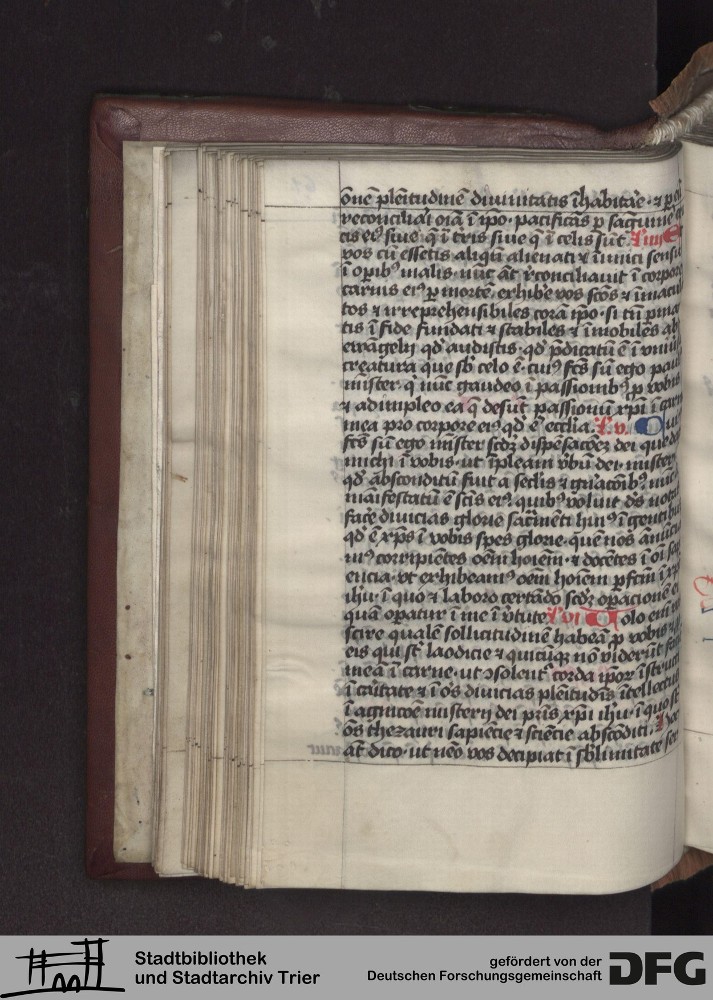 om̄e plētitudinē diuinitatis īhabitar̄e · ⁊ p eū
reconciliari oīa ī ipō · pacificās p sāguinē
cis eiꝰ siue q̄ ī tr̄is siue q̄ ī celis sūt
vos cū essetis aliqn̄ alienati ⁊ inimici sensu
ī opibꝰ malis · nūc at̄ r̄conciliauit ī corpore
carnis eiꝰ p mortē, exhibe vos sc̄os ⁊ īmacul
tos ⁊ irreprehensibiles corā ipō · si tn̄ pma
tis ī fide fundati ⁊ stabiles ⁊ īmobiles ab
ewāgelij qd̄ audistis · qd̄ p̄dicatū ē ī vniu
creatura que sb̄ celo ē · cuiꝰ fc̄s sū ego pau
minister · q̄ nūc gaudeo ī passionibꝰ p vobis
⁊ adimpleo ea q̄ desūt passionū xp̄i ī carn
mea pro corpore eiꝰ qd̄ ē eccl̄ia · l. v.
fc̄s sū ego minister scd̄ꝫ dispēsac̄oeꝫ dei que da
michi ī vobis · ut īpleam v̄bū dei · misteri
qd̄ absconditū fuit a secl̄is ⁊ gn̄ac̄oibꝰ · nūc
māifestatū ē sc̄is eiꝰ · quibꝰ voluit ds̄ notu
facē diuicias glorie sac̄mēti huiꝰ ī gentibus
qd̄ ē xp̄s ī vobis spes glorie · quē nos ānūci
mꝰ corripiētes oēm hoīem · ⁊ docētes ī oī sap
encia · vt exhibeamꝰ oēm hoīem pfc̄m ī xp̄
ih̄u · ī quo ⁊ laboro certādo scd̄ꝫ opacionē ei
quā opatur ī me ī v̄tute l. vi Uolo em̄ v
scire qualē sollicitudinē habeā p vobis ⁊
eis qui st̄ laodicie ⁊ quicūqꝫ nō viderūt faciē
meā ī carne · ut ↄsolent᷑ corda ipoꝝ īstructi
ī cāitate ⁊ ī os̄ diuicias plētitudīs ītellectus
ī agnic̄oe misterij dei pr̄is xp̄i ih̄u · ī quo st̄
os̄ thezauri sapiēcie ⁊ sciēcie abscōditi · hoc
at̄ dico · ut nēo vos decipiat ī sb̄limitate ser
Stadtbibliothek
und Stadtarchiv Trier
gefördert von der
Deutschen Forschungsgemeinschaft
DFG